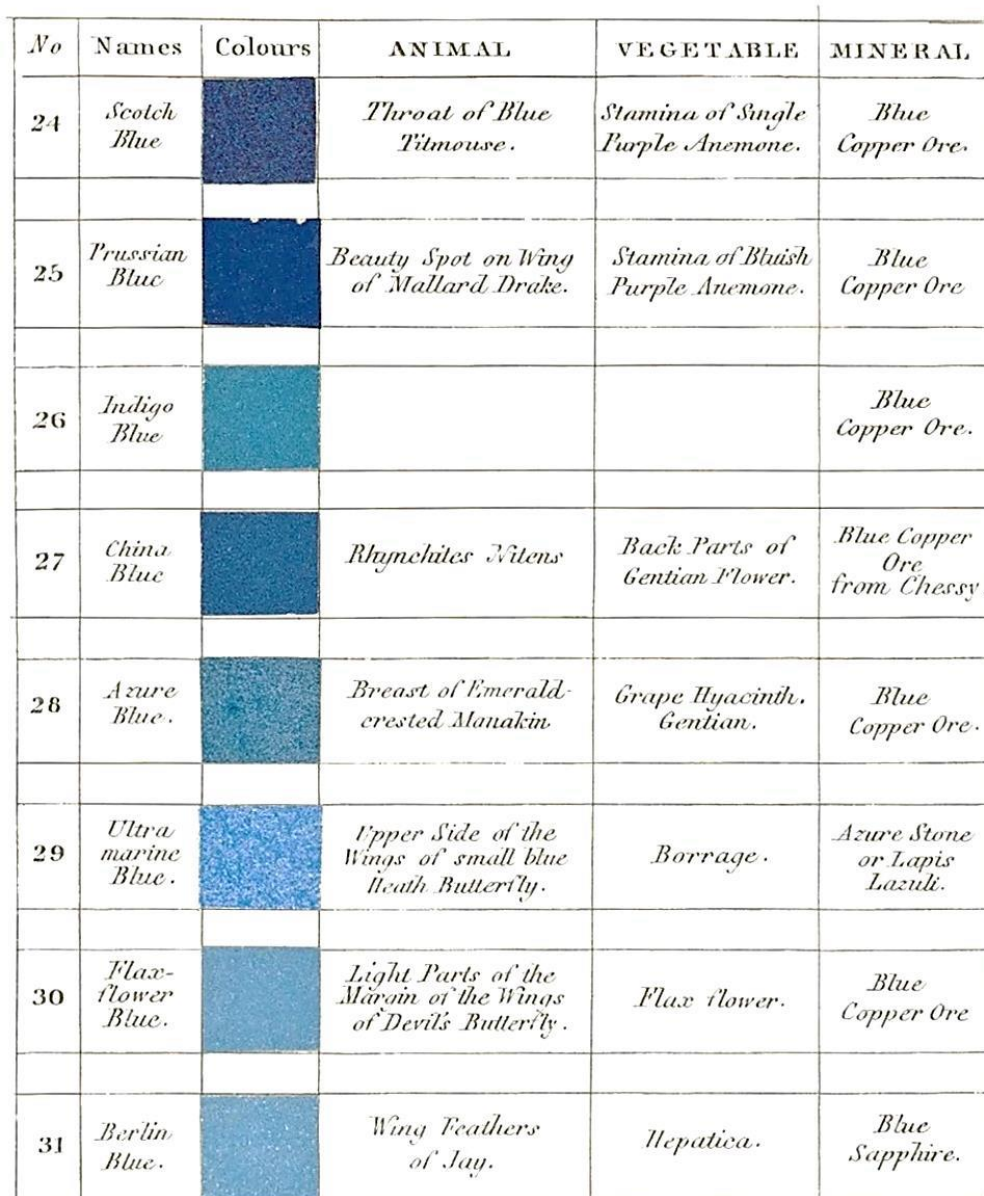 No Names Colours ANIMAL VEGETABLE MINERAL
24
Scotch
Blue
Throat of Blue
Titmouse.
Stamina of Single
Purple Anemone.
Blue
Copper Ore.
25
Prussian
Blue
Beauty Spot on Wing
of Mallard Drake.
Stamina of Bluish
Purple Anemone.
Blue
Copper Ore
26
Indigo
Blue
Blue
Copper Ore.
27
China
Blue
Rhynchites Nitens
Back Parts of
Gentian Flower.
Blue Copper
Ore
from Chessy
28
Azure
Blue.
Breast of Emerald-
crested Manakin
Grape Hyacinth.
Gentian.
Blue
Copper Ore.
29
Ultra
marine
Blue.
Upper Side of the
Wings of small blue
Heath Butterfly.
Borrage.
Azure Stone
or Lapis
Lazuli.
30
Flax-
flower
Blue.
Light Parts of the
Margin of the Wings
of Devil's Butterfly.
Flax flower.
Blue
Copper Ore
31
Berlin
Blue.
Wing Feathers
of Jay.
Hepatica.
Blue
Sapphire.